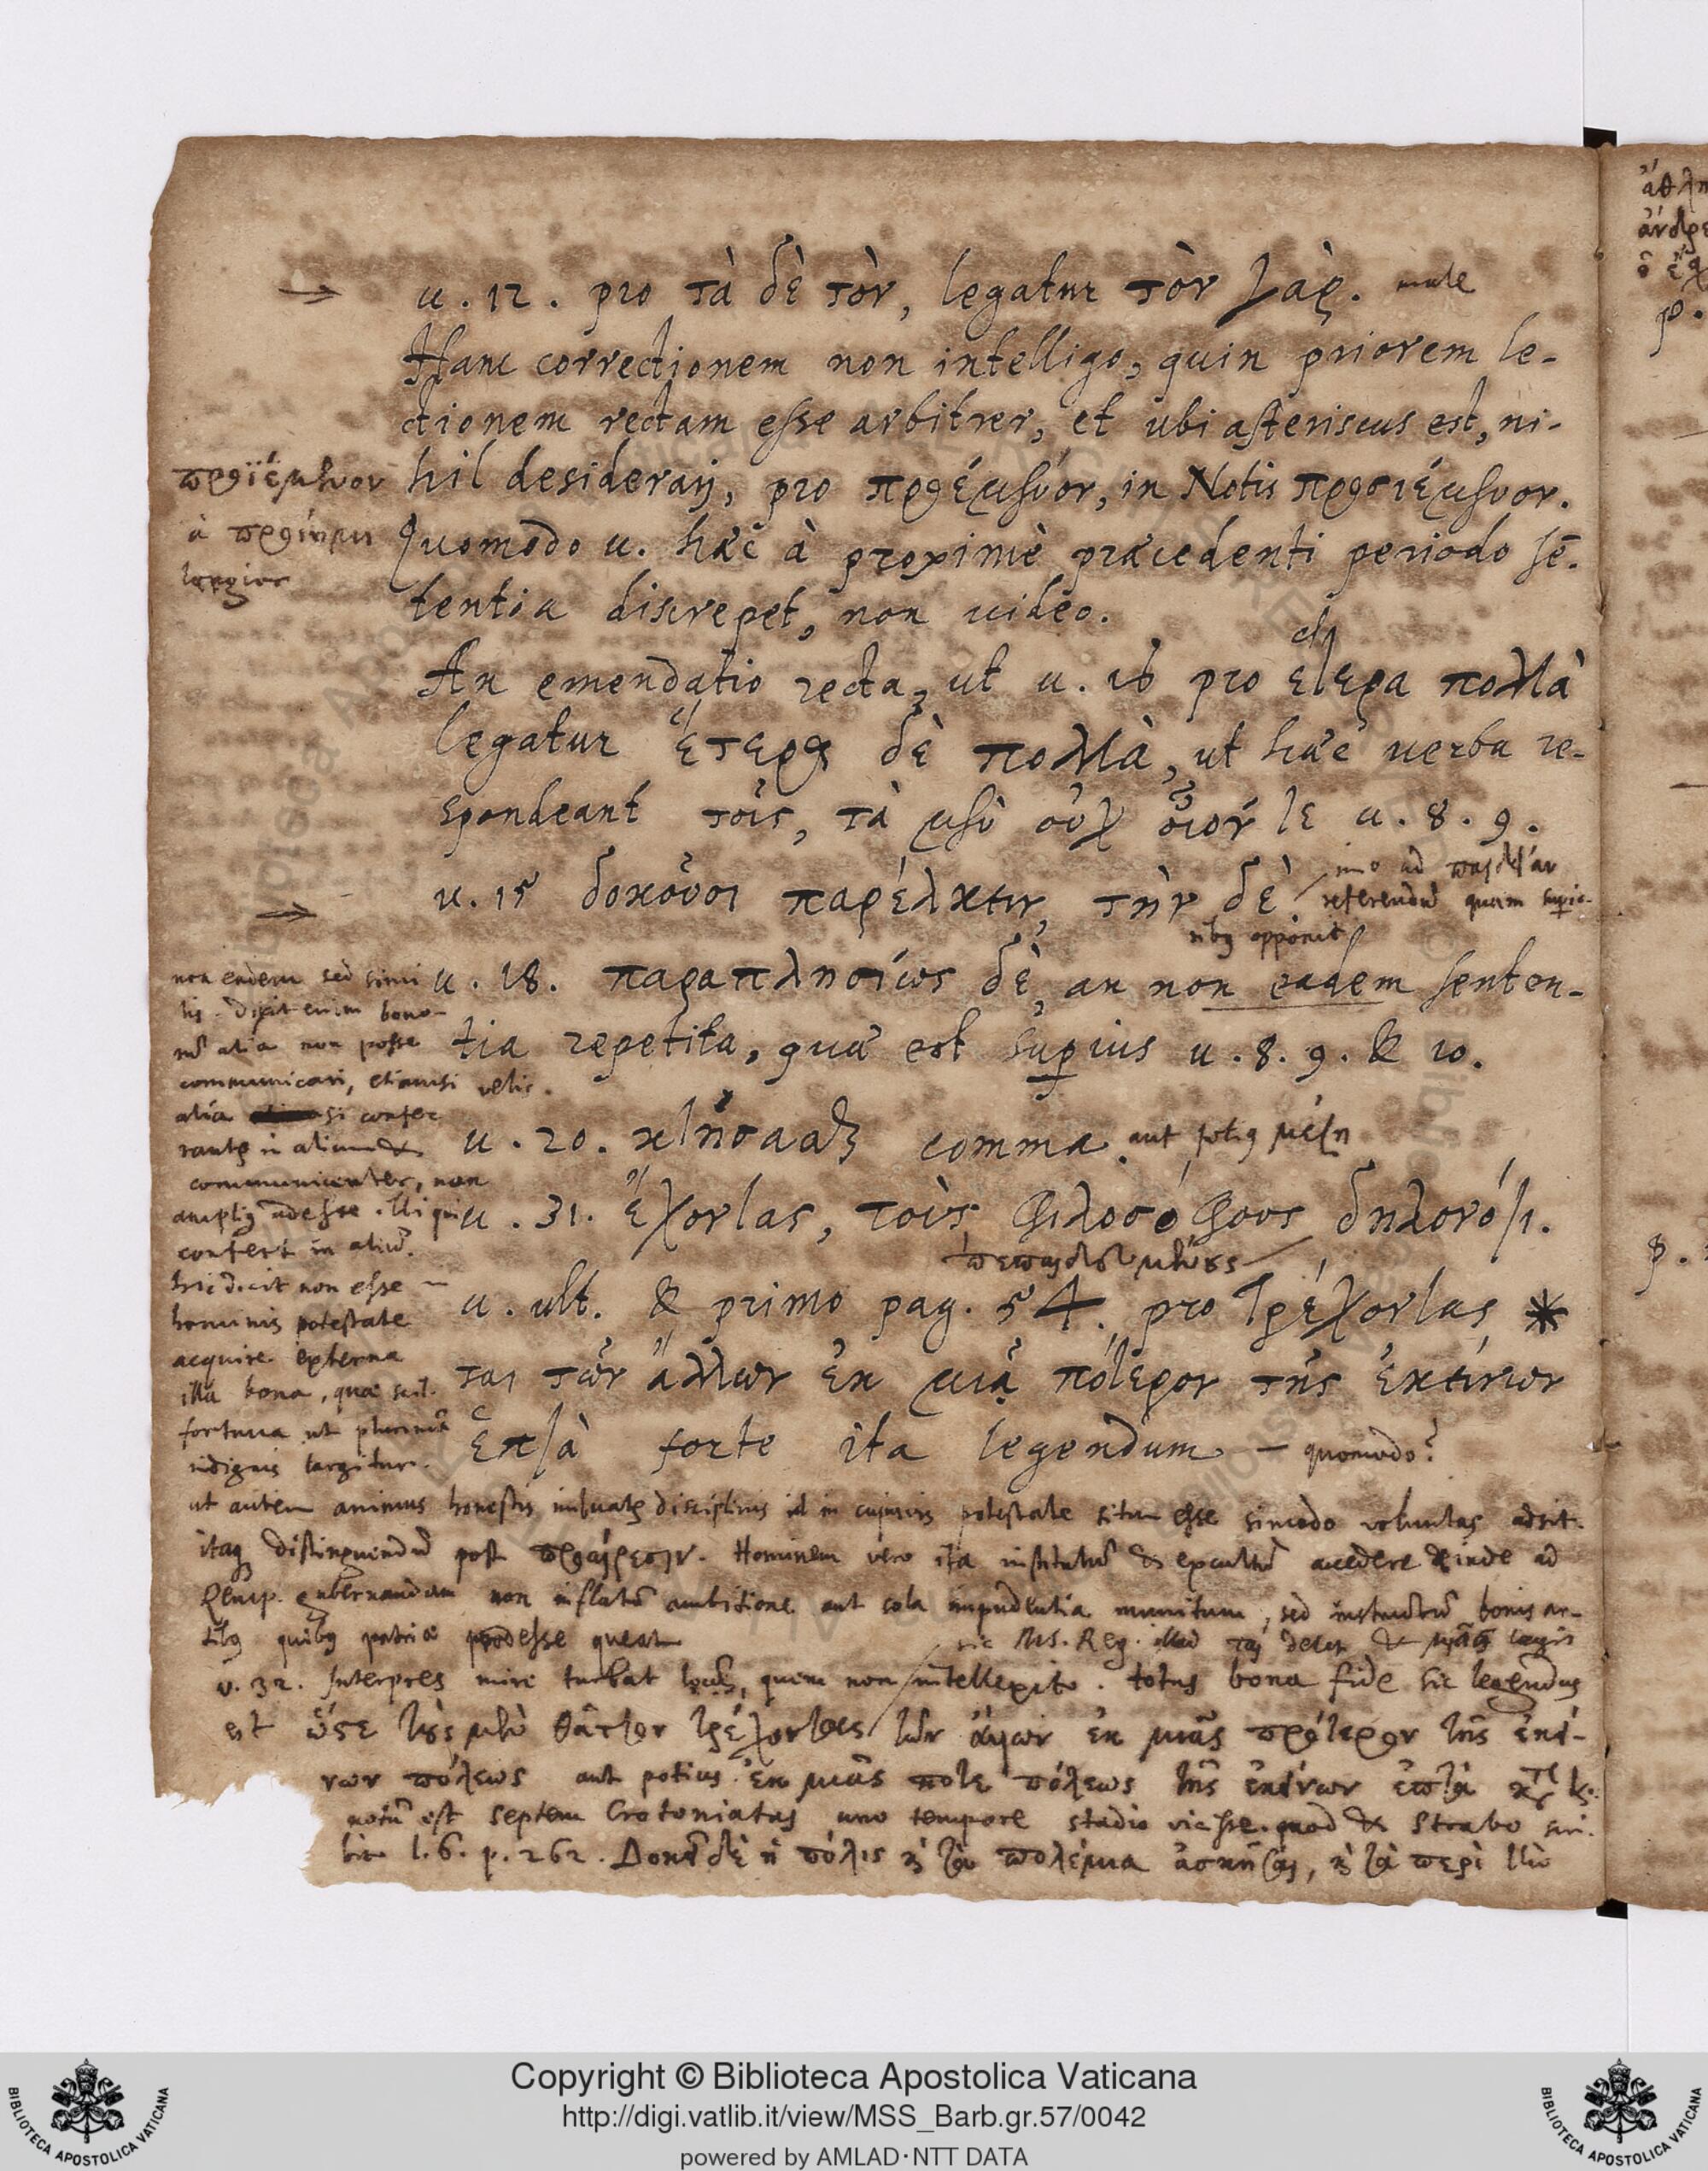 u. 12. pro τὰ δὲ τὸν, legatur τὸν γὰρ. male
Hanc correctionem non intelligo, quin priorem le-
ctionem rectam esse arbitrer, et ubi asteriscus est, ni-
hil desiderarij, pro προέμενον, in Notis προσιέμενον.
Quomodo u. hæc à proximè præcedenti periodo sē-
tentia discrepet, non uideo.
An emendatio recta, ut u. 16 pro ἕτερα πολλὰ
legatur ἕτερα δὲ πολλὰ, ut hæc uerba re-
spondeant τοῖς, τὰ μὲν οὐχ οἷόν τε u. 8. 9.
u. 15 δοκοῦσι παρέλκειν, τὴν δὲ.
imo ad παιδείαν
referendū quam superio-
ribus opponit
u. 18. παραπλησίως δὲ, an non eadem senten-
tia repetita, quæ est superius u. 8. 9. & 10.
u. 20. κτήσασθαι comma. aut potius μέση
u. 31. ἔχοντας, τοὺς φιλοσόφους δηλονότι.
πεπαιδευμένους
u. ult. & primo pag. 54. pro τρέχοντας *
ται τῶν ἄλλων ἐκ μιᾶ πότερον τῆς ἐκείνων
ἑπτὰ forte ita legendum – quomodo?
προϊέμενον
à προΐημι
largior
non eadem sed simi
lis. dixit enim bono-
rū alia non posse
communicari, etiamsi velis.
alia si confe-
rantur in alium &
communicentur, non
amplius adesse illi qui
confert in aliū.
hic dicit non esse
hominis potestate
acquire externa
illa bona, quæ scil.
fortuna ut plurimū
indignis largitur.
ut autem animus honestis imbuatur disciplinis id in cujusvis potestate situm esse simodo voluntas adsit.
itaq distinguendū post προαίρεσιν. Hominem vero ita institutū & excultū accedere deinde ad
Remp. gubernandam non inflatū ambitione aut sola impudentia munitum, sed instructū bonis ar-
tibus quibus patriæ prodesse queat.
sic MS. Reg. illud ται delet & μιᾶς legit
v. 32. Interpres mire turbat locū, quem non intellexit. totus bona fide sic legendus
est ὥστε τοὺς μὲν θᾶττον τρέχοντας τῶν ἄλλων ἐκ μιᾶς πρότερον τῆς ἐκεί-
νων πόλεως aut potius ἐκ μιᾶς ποτε πόλεως τῆς ἐκείνων ἑπτὰ
notū est septem Crotoniatas uno tempore stadio vicisse. quod & Strabo scri-
bit l. 6. p. 262. Δοκεῖ δὲ ἡ πόλις τά τε πολέμια ἀσκῆσαι, καὶ τὰ περὶ τὴν
Copyright © Biblioteca Apostolica Vaticana
http://digi.vatlib.it/view/MSS_Barb.gr.57/0042
powered by AMLAD·NTT DATA
BIBLIOTECA APOSTOLICA VATICANA
BIBLIOTECA APOSTOLICA VATICANA